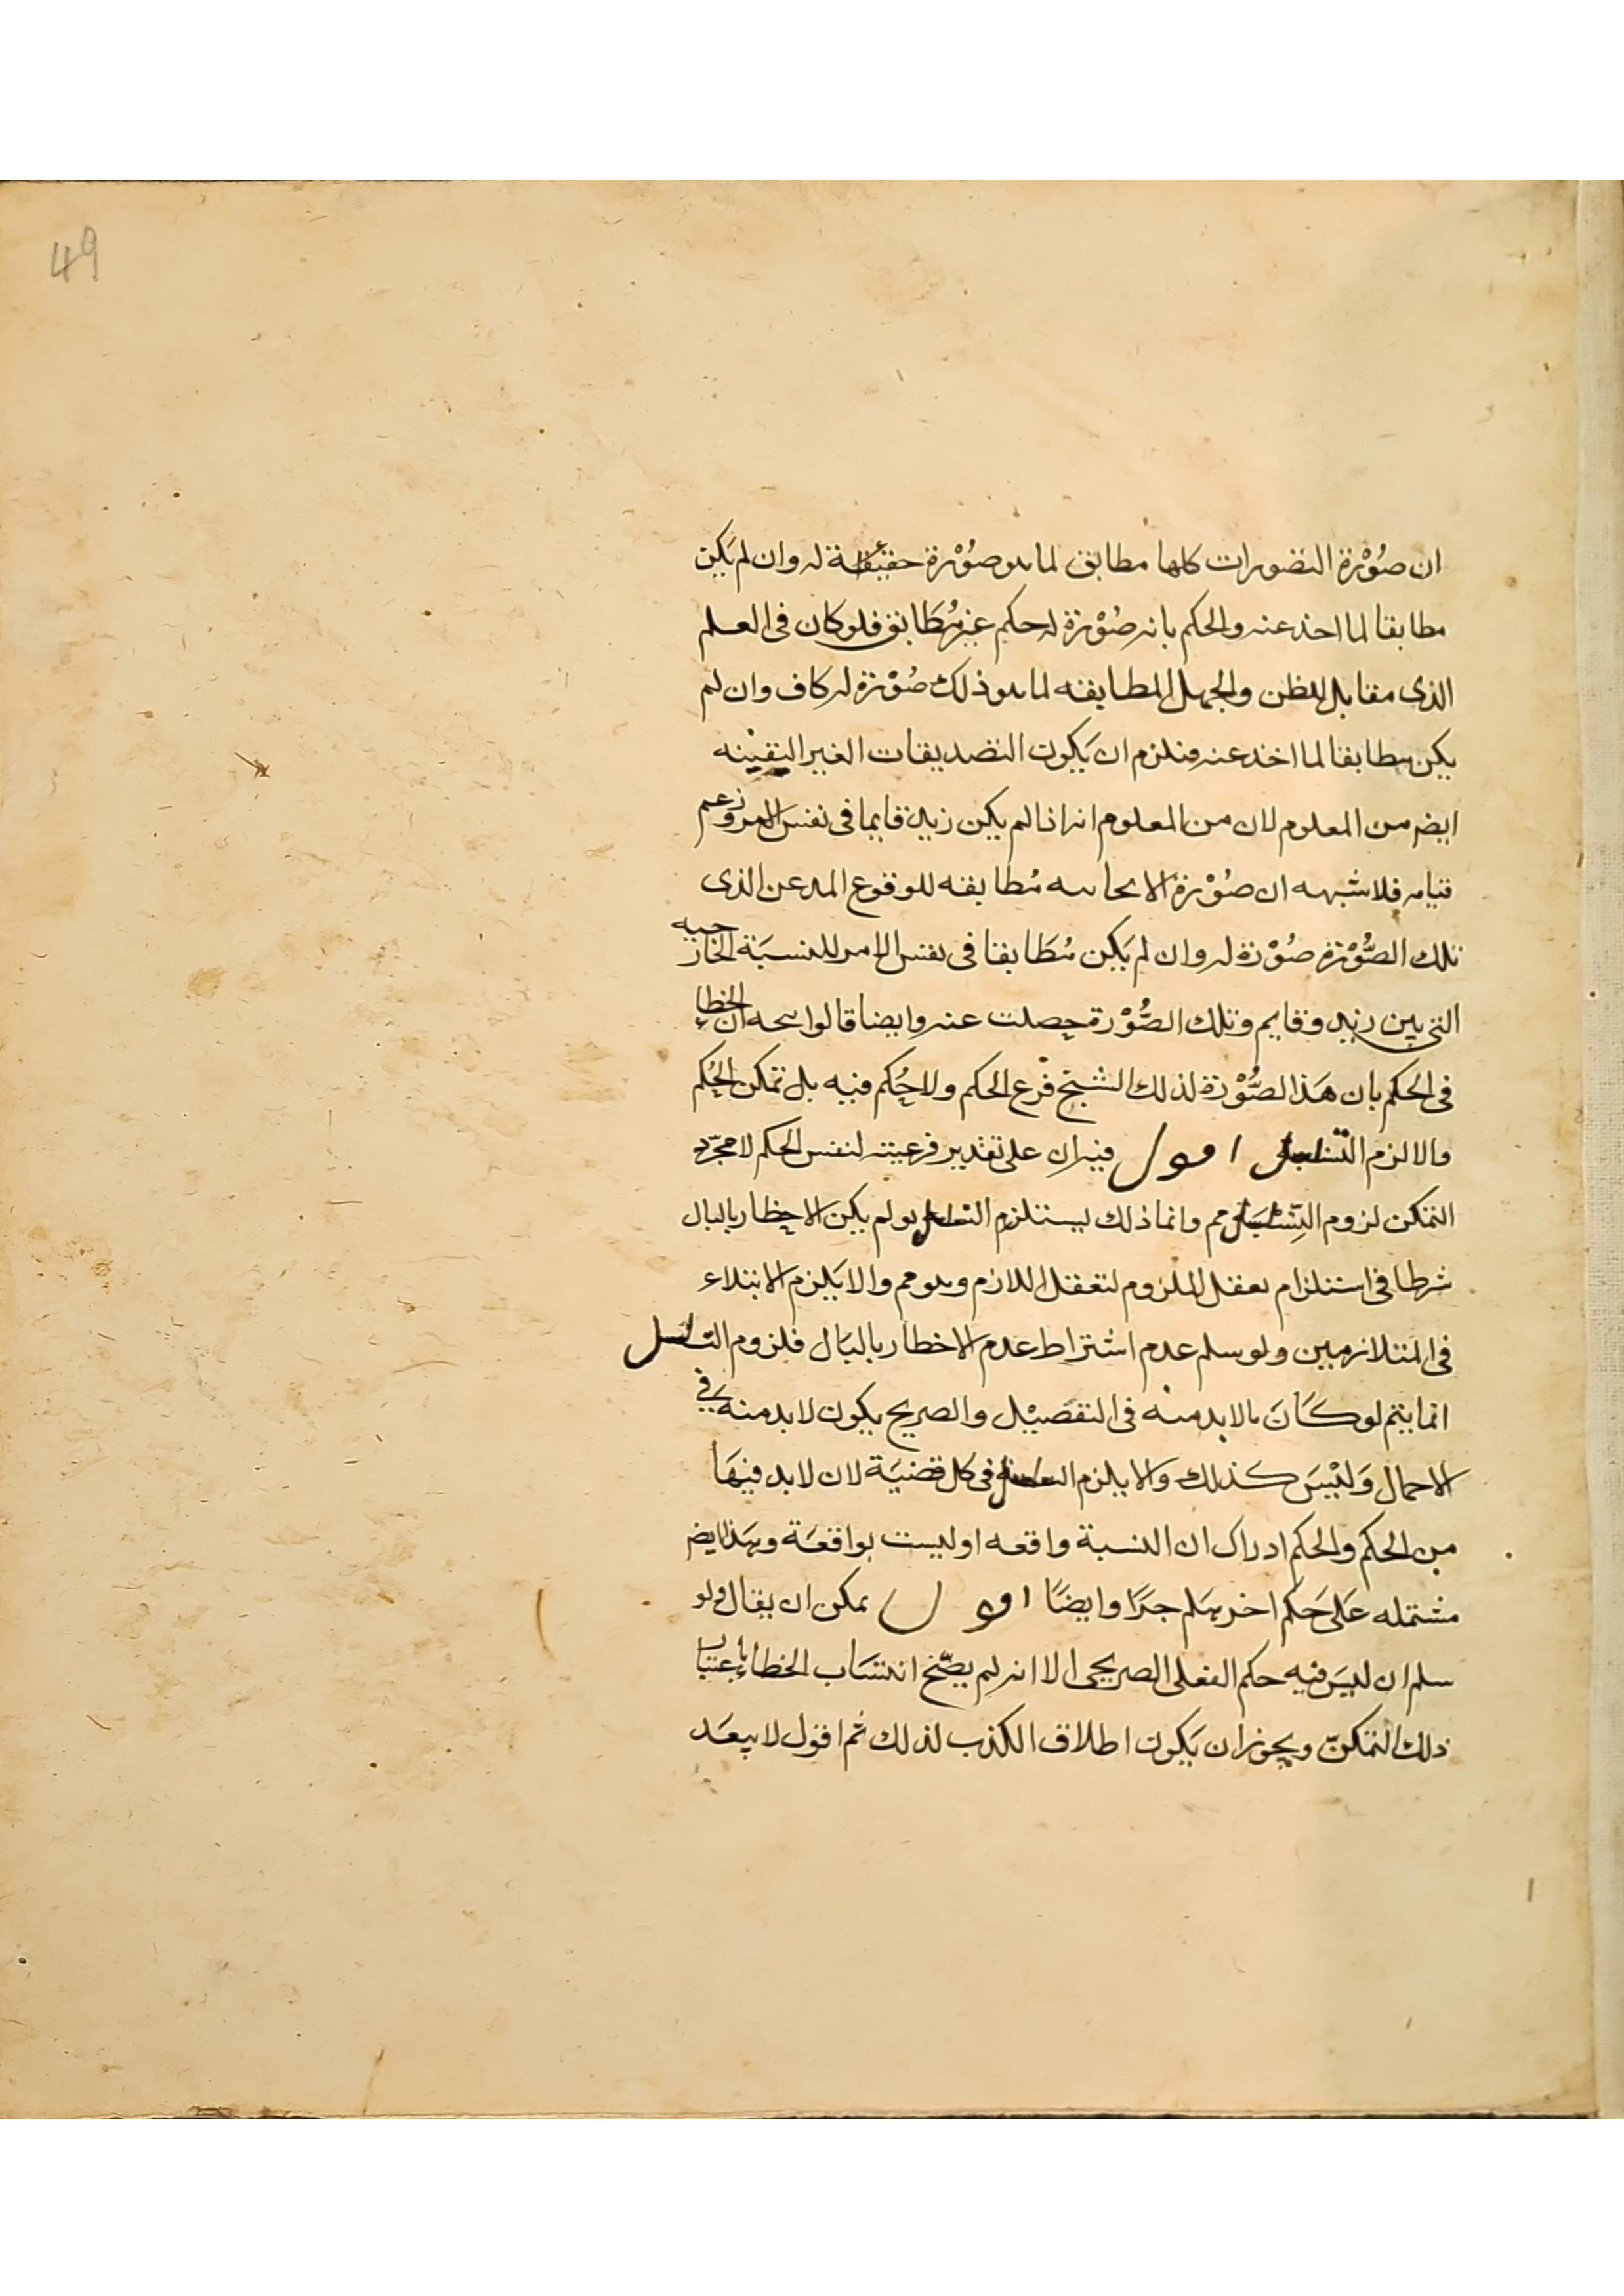 49
ان صُوْرة التصورات كلها مطابق لما هو صُوْرة حقيقة له وان لم يَكن
مطابقا لما اخذ عنه والحكم بانه صُوْرَة له حكم غير مُطَابق فلو كان فى العلم
الذى مقابل للظن والجهل المطابقه لما هو ذلك صُوْرَة له كاف وان لم
يكن مطابقا لما اخذ عنه فلزم ان يَكون التصديقات الغير اليقينه
ايضر من المعلوم لان من المعلوم انه اذا لم يكن زيد قايما فى نفس الامر وزعم
قيامه فلا شبهه ان صُوْرة الايحاىىه مُطابقه للوقوع المدعن الذى
تلك الصُّوْرَة صُوْرَة له وان لم يَكِن مُطَابقا فى نفس الامر للنسبَة الخارجيه
التى بين زيد وقايم وتلك الصُّوْرة حصلت عنه وايضا قالوا ان الخطاء
فى الحكم بان هَذا الصُّوْرَة لذلك الشبح فرع الحكم ولا حُكم فيه بل تمكن الحُكم
والا لزم التسلسل اقول فيه ان على تقدير فرعيته لنفس الحكم لا مجرّد
التمكن لزوم التسلسل مم وانما ذلك يستلزم التسلسل لو لم يكن الاخطار بالبال
شرطا فى استلزام تعقل الملزوم لتعقل اللازم وهو مم والا يَلزم الابتلاء
فى المتلازمين ولو سلم عدم اشتراط عدم الاخطار بالبَال فلزوم التسلسل
انما يتم لو كَانَ مالابد منه فى التفصيْل والصريح يكون لابد منه فى
الاجمال وَليْسَ كذلك والا يلزم التسلسل فى كل قضيَة لان لابد فيهَا
من الحكم والحكم ادراك ان النسبة واقعه او ليست بواقعَة وهَذا ايضر
مشتمله عَلى حَكم اخر هَلم جرّا وايضًا اقول يمكن ان يقال ولو
سلم ان ليسَ فيه حكم الفعلى الصريحى الا انه لم يصّح انتسَاب الخطاء باعتبار
ذلك التمكنّ ويجوز ان يَكون اطلاق الكذب لذلك ثم اقول لا يبعَد